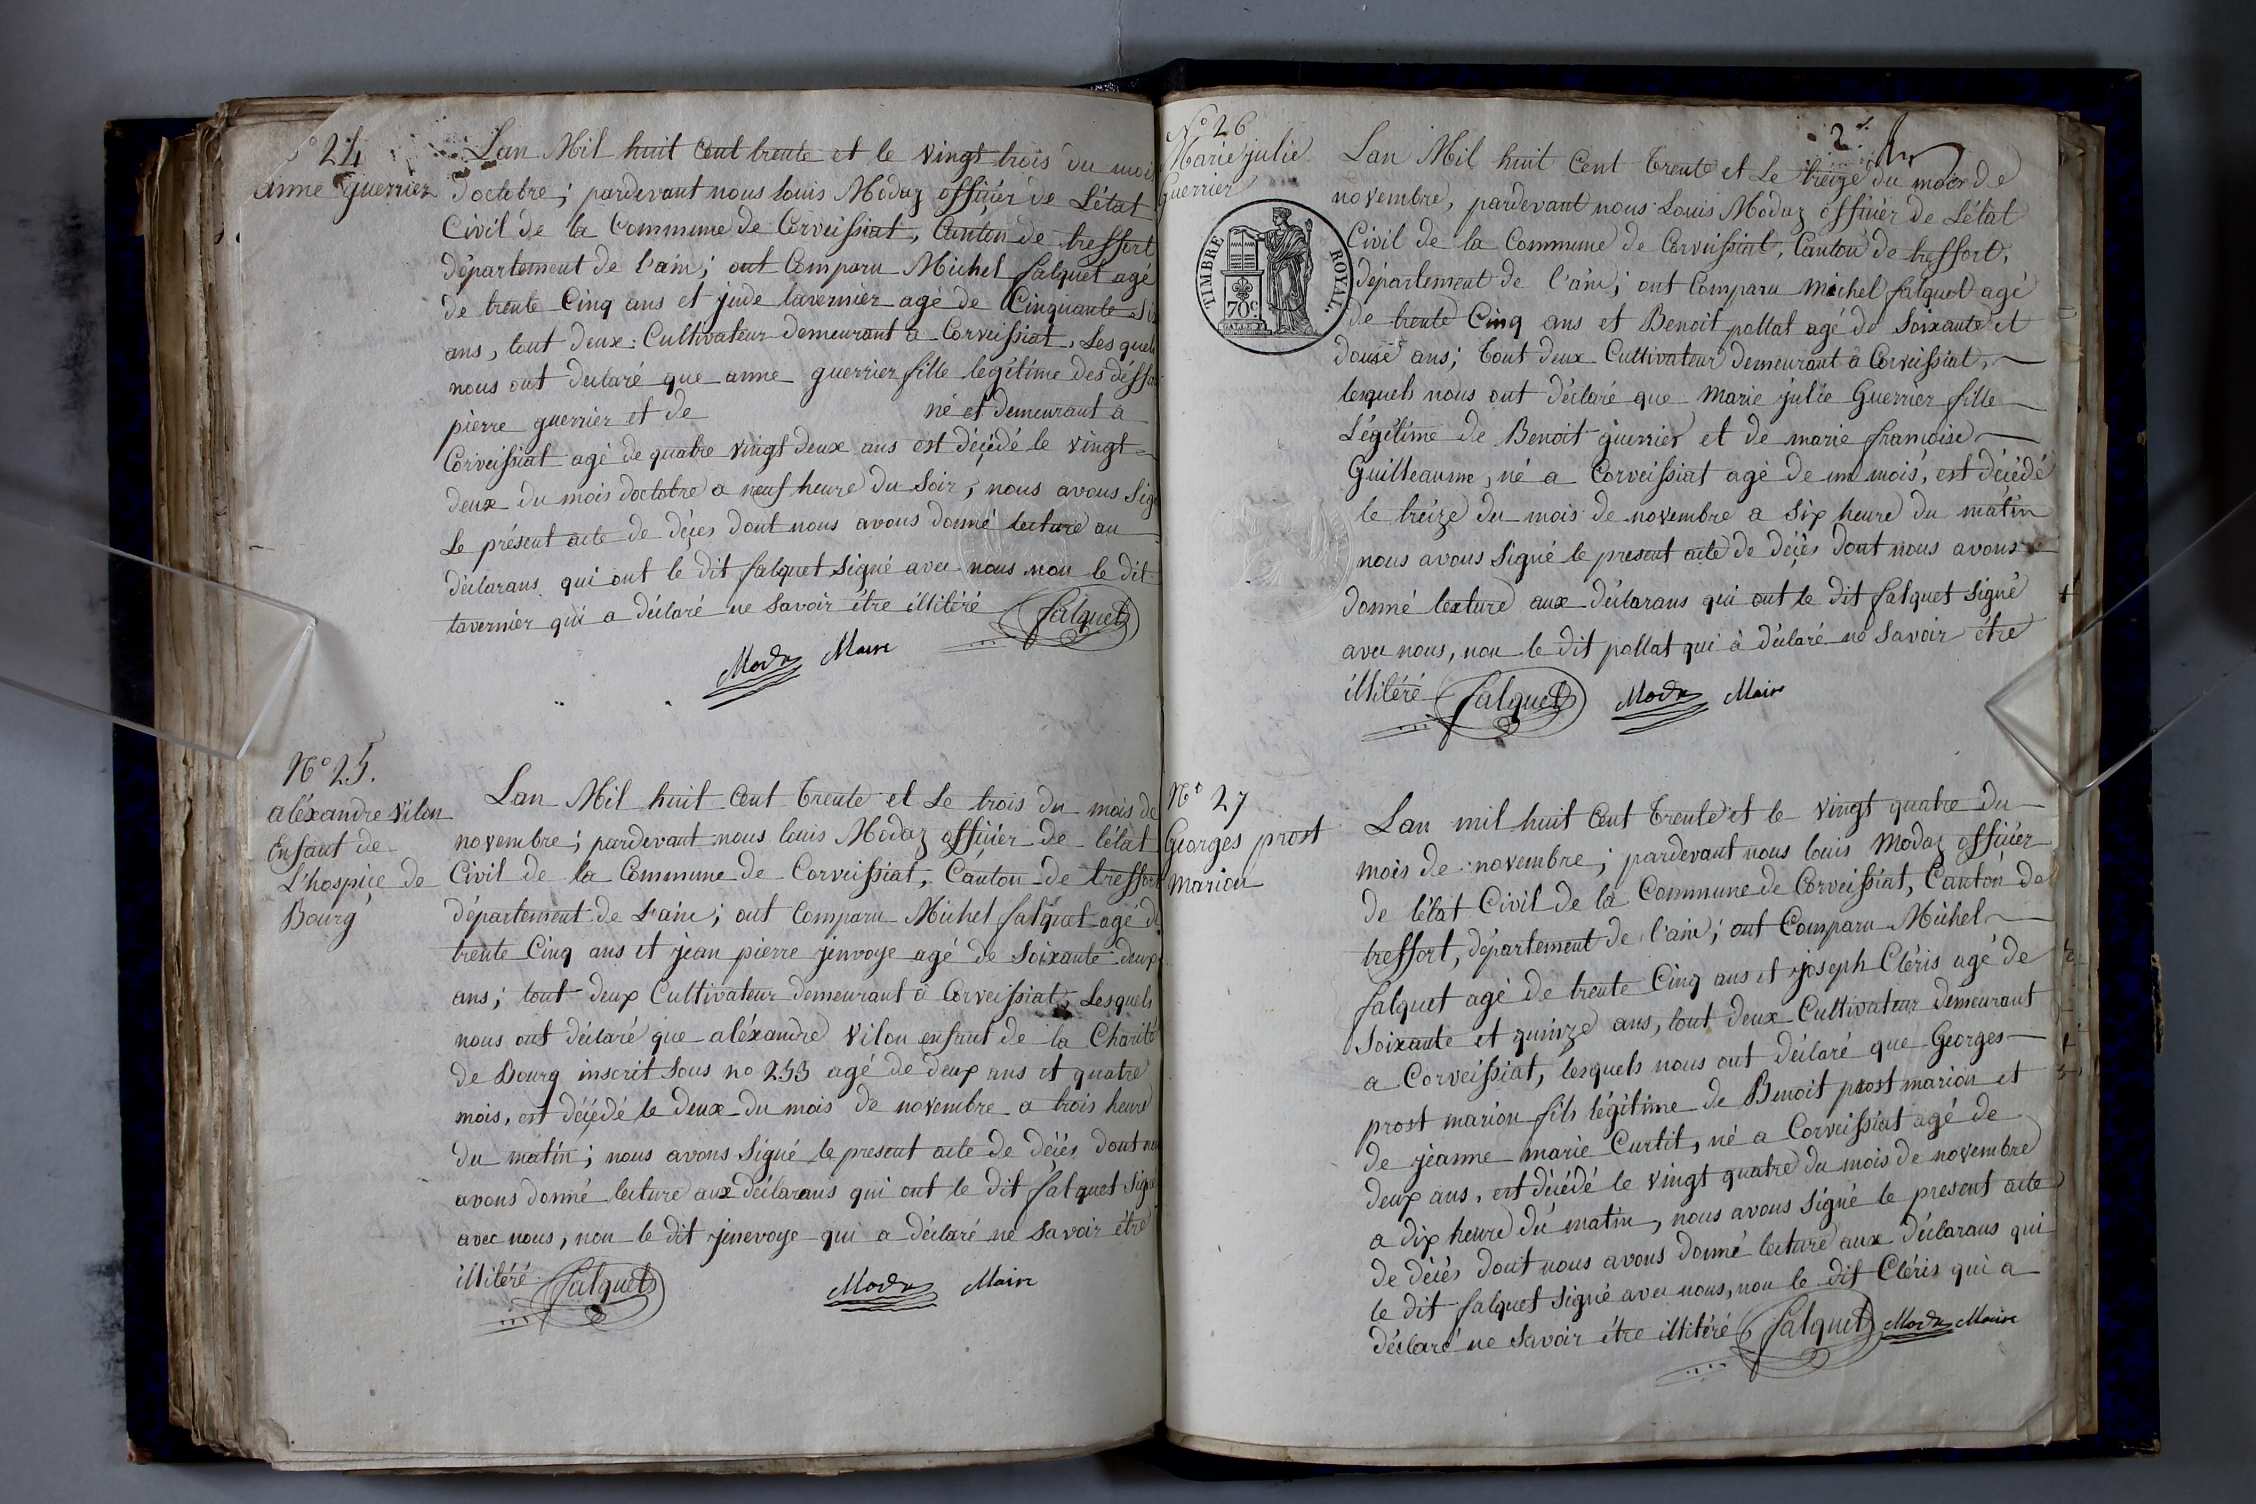 N° 24
anne guerrier
Lan Mil huit Cent trente et le vingt trois du moi
doctobre; pardevant nous louis Modaz officiér de L'état
Civil de la Commune de Corveissiat, Canton de treffort
département de l'ain; ont Comparu Michel falquet agé
de trente Cinq ans et jude tavernier agé de Cinquante Si
ans, tout deux Cultivateur demeurant a Corveissiat, Les quels
nous ont déclaré que anne guerrier fille legitime des déffu
pierre guerrier et de né et demeurant a
Corveissiat agé de quatre vingt deux ans est décédé le vingt
deux du mois doctobre a neuf heure du Soir; nous avons Sig
Le présent acte de décès dont nous avons donné lecture au
déclarans qui ont le dit falquet Signé avec nous non le dit
tavernier qui a déclaré ne Savoir étre illitéré falquet
Modaz Maire
N° 25.
aléxandre vilon
Enfant de
L'hospice de
Bourg
Lan Mil huit Cent Trente et Le trois du mois de
novembre; pardevant nous louis Modaz officiér de l'état
Civil de la Commune de Corveissiat, Canton de treffort
département de L'ain; ont Comparu Michel falquet agé de
trente Cinq ans et jean pierre jenvoye agé de Soixante deux
ans; tout deux Cultivateur demeurant a Corveissiat, Lesquels
nous ont déclaré que aléxandre vilon enfant de la Charité
de Bourg inscrit Sous no 253 agé de deux ans et quatre
mois, est décédé le deux du mois de novembre a trois heure
du matin; nous avons Signé le présent acte de décés dont nou
avons donné lecture aux déclarans qui ont le dit falquet Signé
avec nous, non le dit jenevoye qui a déclaré ne Savoir étre
illitéré falquet Modaz Maire
N° 26
Marie julie
Guerrier
TIMBRE ROYAL.
70c
Lan Mil huit Cent Trente et Le treize du mois de
novembre, pardevant nous Louis Modaz officiér de L'état
Civil de la Commune de Corveissiat, Canton de treffort,
département de l'ain; ont Comparu michel falquet agé
de trente Cinq ans et Benoit pollat agé de Soixante et
douse ans; Tout deux Cultivateur demeurant a Corveissiat,
lesquels nous ont déclaré que Marie julie Guerrier fille
Légitime de Benoit guerrier et de marie francoise
Guilleaume, né a Corveissiat agé de un mois, est décédé
le treize du mois de novembre a Six heure du matin
nous avons Signé le present acte de décès dont nous avons
donné lecture aux déclarans qui ont le dit falquet Signé
avec nous, non le dit pollat qui à déclaré ne Savoir étre
illitéré falquet Modaz Maire
N° 27
Georges prost
Marion
Lan mil huit Cent Trente et le vingt quatre du
mois de novembre; pardevant nous louis Modaz officiér
de l'état Civil de la Commune de Corveissiat, Canton de
treffort, département de l'ain; ont Comparu Michel
falquet agé de trente Cinq ans et joseph Cléris agé de
Soixante et quinze ans, tout deux Cultivateur demeurant
a Corveissiat, lesquels nous ont déclaré que Georges
prost marion fils légitime de Benoit prost marion et
de jeanne marie Curtit, né a Corveissiat agé de
deux ans, est décédé le vingt quatre du mois de novembre
a dix heure du matin, nous avons Signé le present acte
de décés dont nous avons donné lecture aux déclarans qui
le dit falquet Signé avec nous, non le dit Cléris qui a
déclaré ne Savoir étre illitéré falquet Modaz Maire